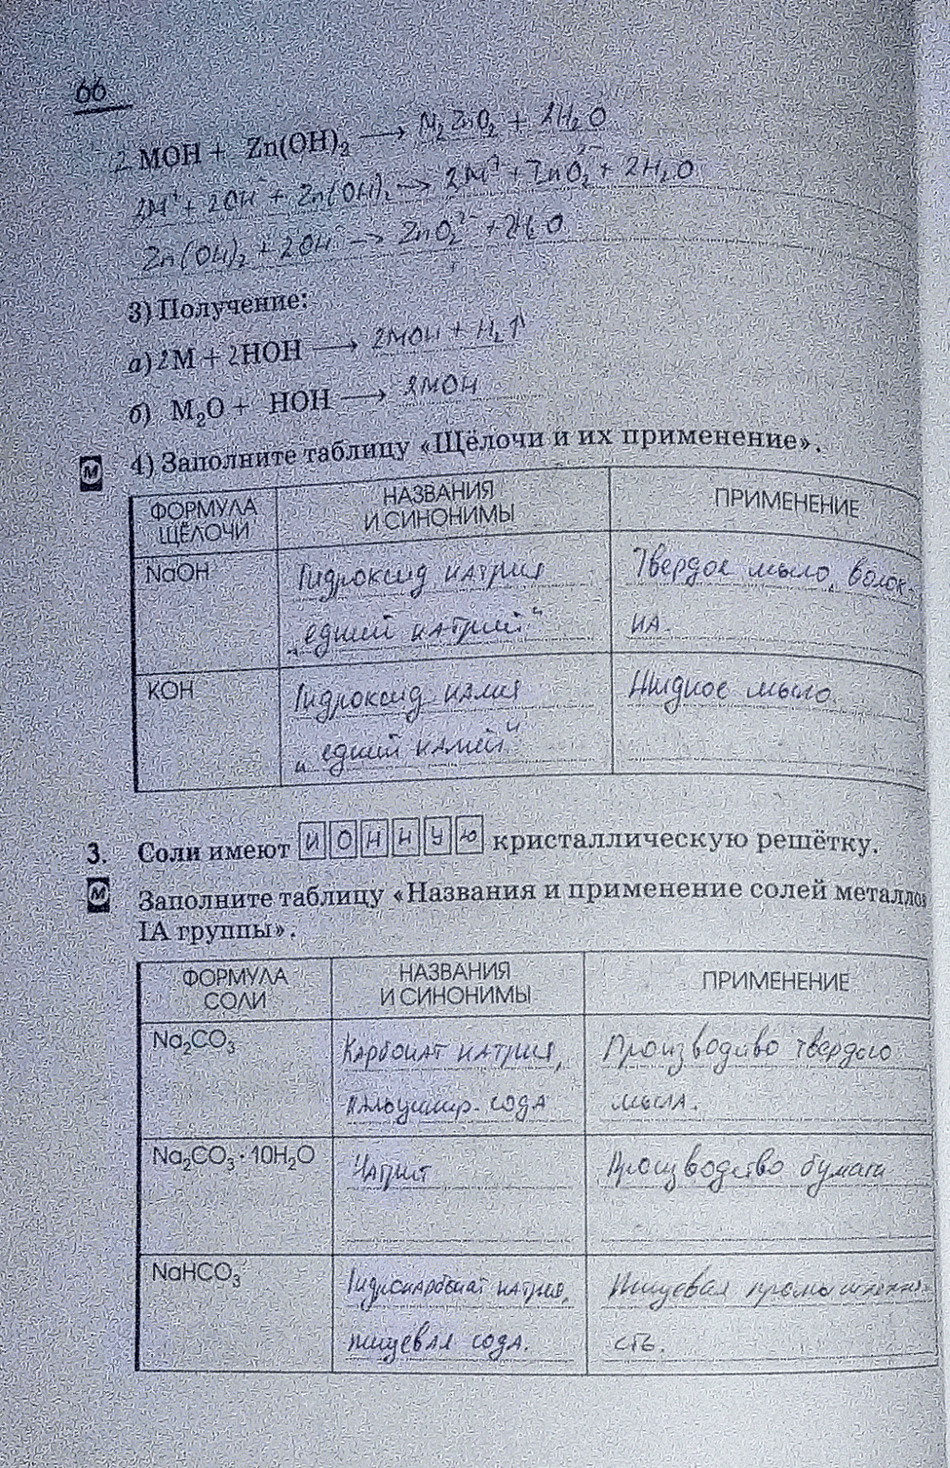 66
2 MOH + Zn(OH)₂ ⟶ M₂ZnO₂ + 2H₂O
2M⁺ + 2OH⁻ + Zn(OH)₂ → 2M⁺ + ZnO₂²⁻ + 2H₂O
Zn(OH)₂ + 2OH⁻ → ZnO₂²⁻ + 2H₂O
3) Получение:
а) 2M + 2HOH ⟶ 2MOH + H₂↑
б) M₂O + HOH ⟶ 2MOH
М 4) Заполните таблицу «Щёлочи и их применение».
ФОРМУЛА ЩЁЛОЧИ
НАЗВАНИЯ И СИНОНИМЫ
ПРИМЕНЕНИЕ
NaOH
Гидроксид натрия
„едкий натрий“
Твердое мыло, волок-
на.
KOH
Гидроксид калия
„едкий калий“
Жидкое мыло.
3. Соли имеют ИОННУЮ кристаллическую решётку.
М Заполните таблицу «Названия и применение солей металлов
IA группы».
ФОРМУЛА СОЛИ
НАЗВАНИЯ И СИНОНИМЫ
ПРИМЕНЕНИЕ
Na₂CO₃
Карбонат натрия,
кальцинир. сода
Производство твердого
мыла.
Na₂CO₃ · 10H₂O
Натрит
Производство бумаги
NaHCO₃
Гидрокарбонат натрия,
пищевая сода.
Пищевая промышленно-
сть.